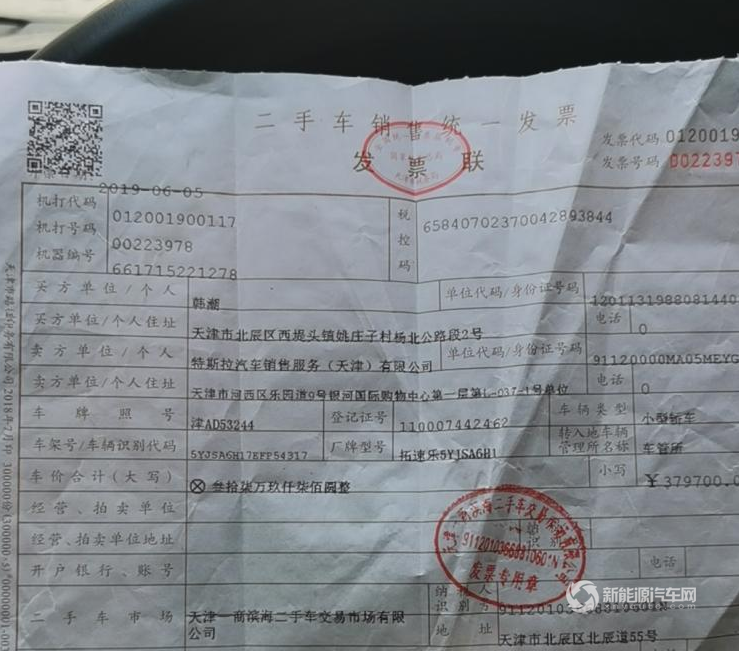 二手车销售统一发票
发票联
发票代码 0120019
发票号码 0022397
2019-06-05
机打代码 012001900117
机打号码 00223978
机器编号 661715221278
税控码 65840702370042893844
买方单位/个人 韩潮 单位代码/身份证号码 1201131988081440
买方单位/个人住址 天津市北辰区西堤头镇姚庄子村杨北公路段2号 电话 0
卖方单位/个人 特斯拉汽车销售服务（天津）有限公司 单位代码/身份证号码 91120000MA05MEYG
卖方单位/个人住址 天津市河西区乐园道9号银河国际购物中心第一层第L-037-1号单位 电话 0
车牌照号 津AD53244 登记证号 110007442462 车辆类型 小型轿车
车架号/车辆识别代码 5YJSA6H17EFP54317 厂牌型号 拓速乐5YJSA6H1 转入地车辆管理所名称 车管所
车价合计(大写) ⊗叁拾柒万玖仟柒佰圆整 小写 ￥379700.0
经营、拍卖单位
经营、拍卖单位地址 电话
开户银行、账号
二手车市场 天津一商滨海二手车交易市场有限公司 纳税人识别号
地址 天津市北辰区北辰道55号
发票专用章
新能源汽车网